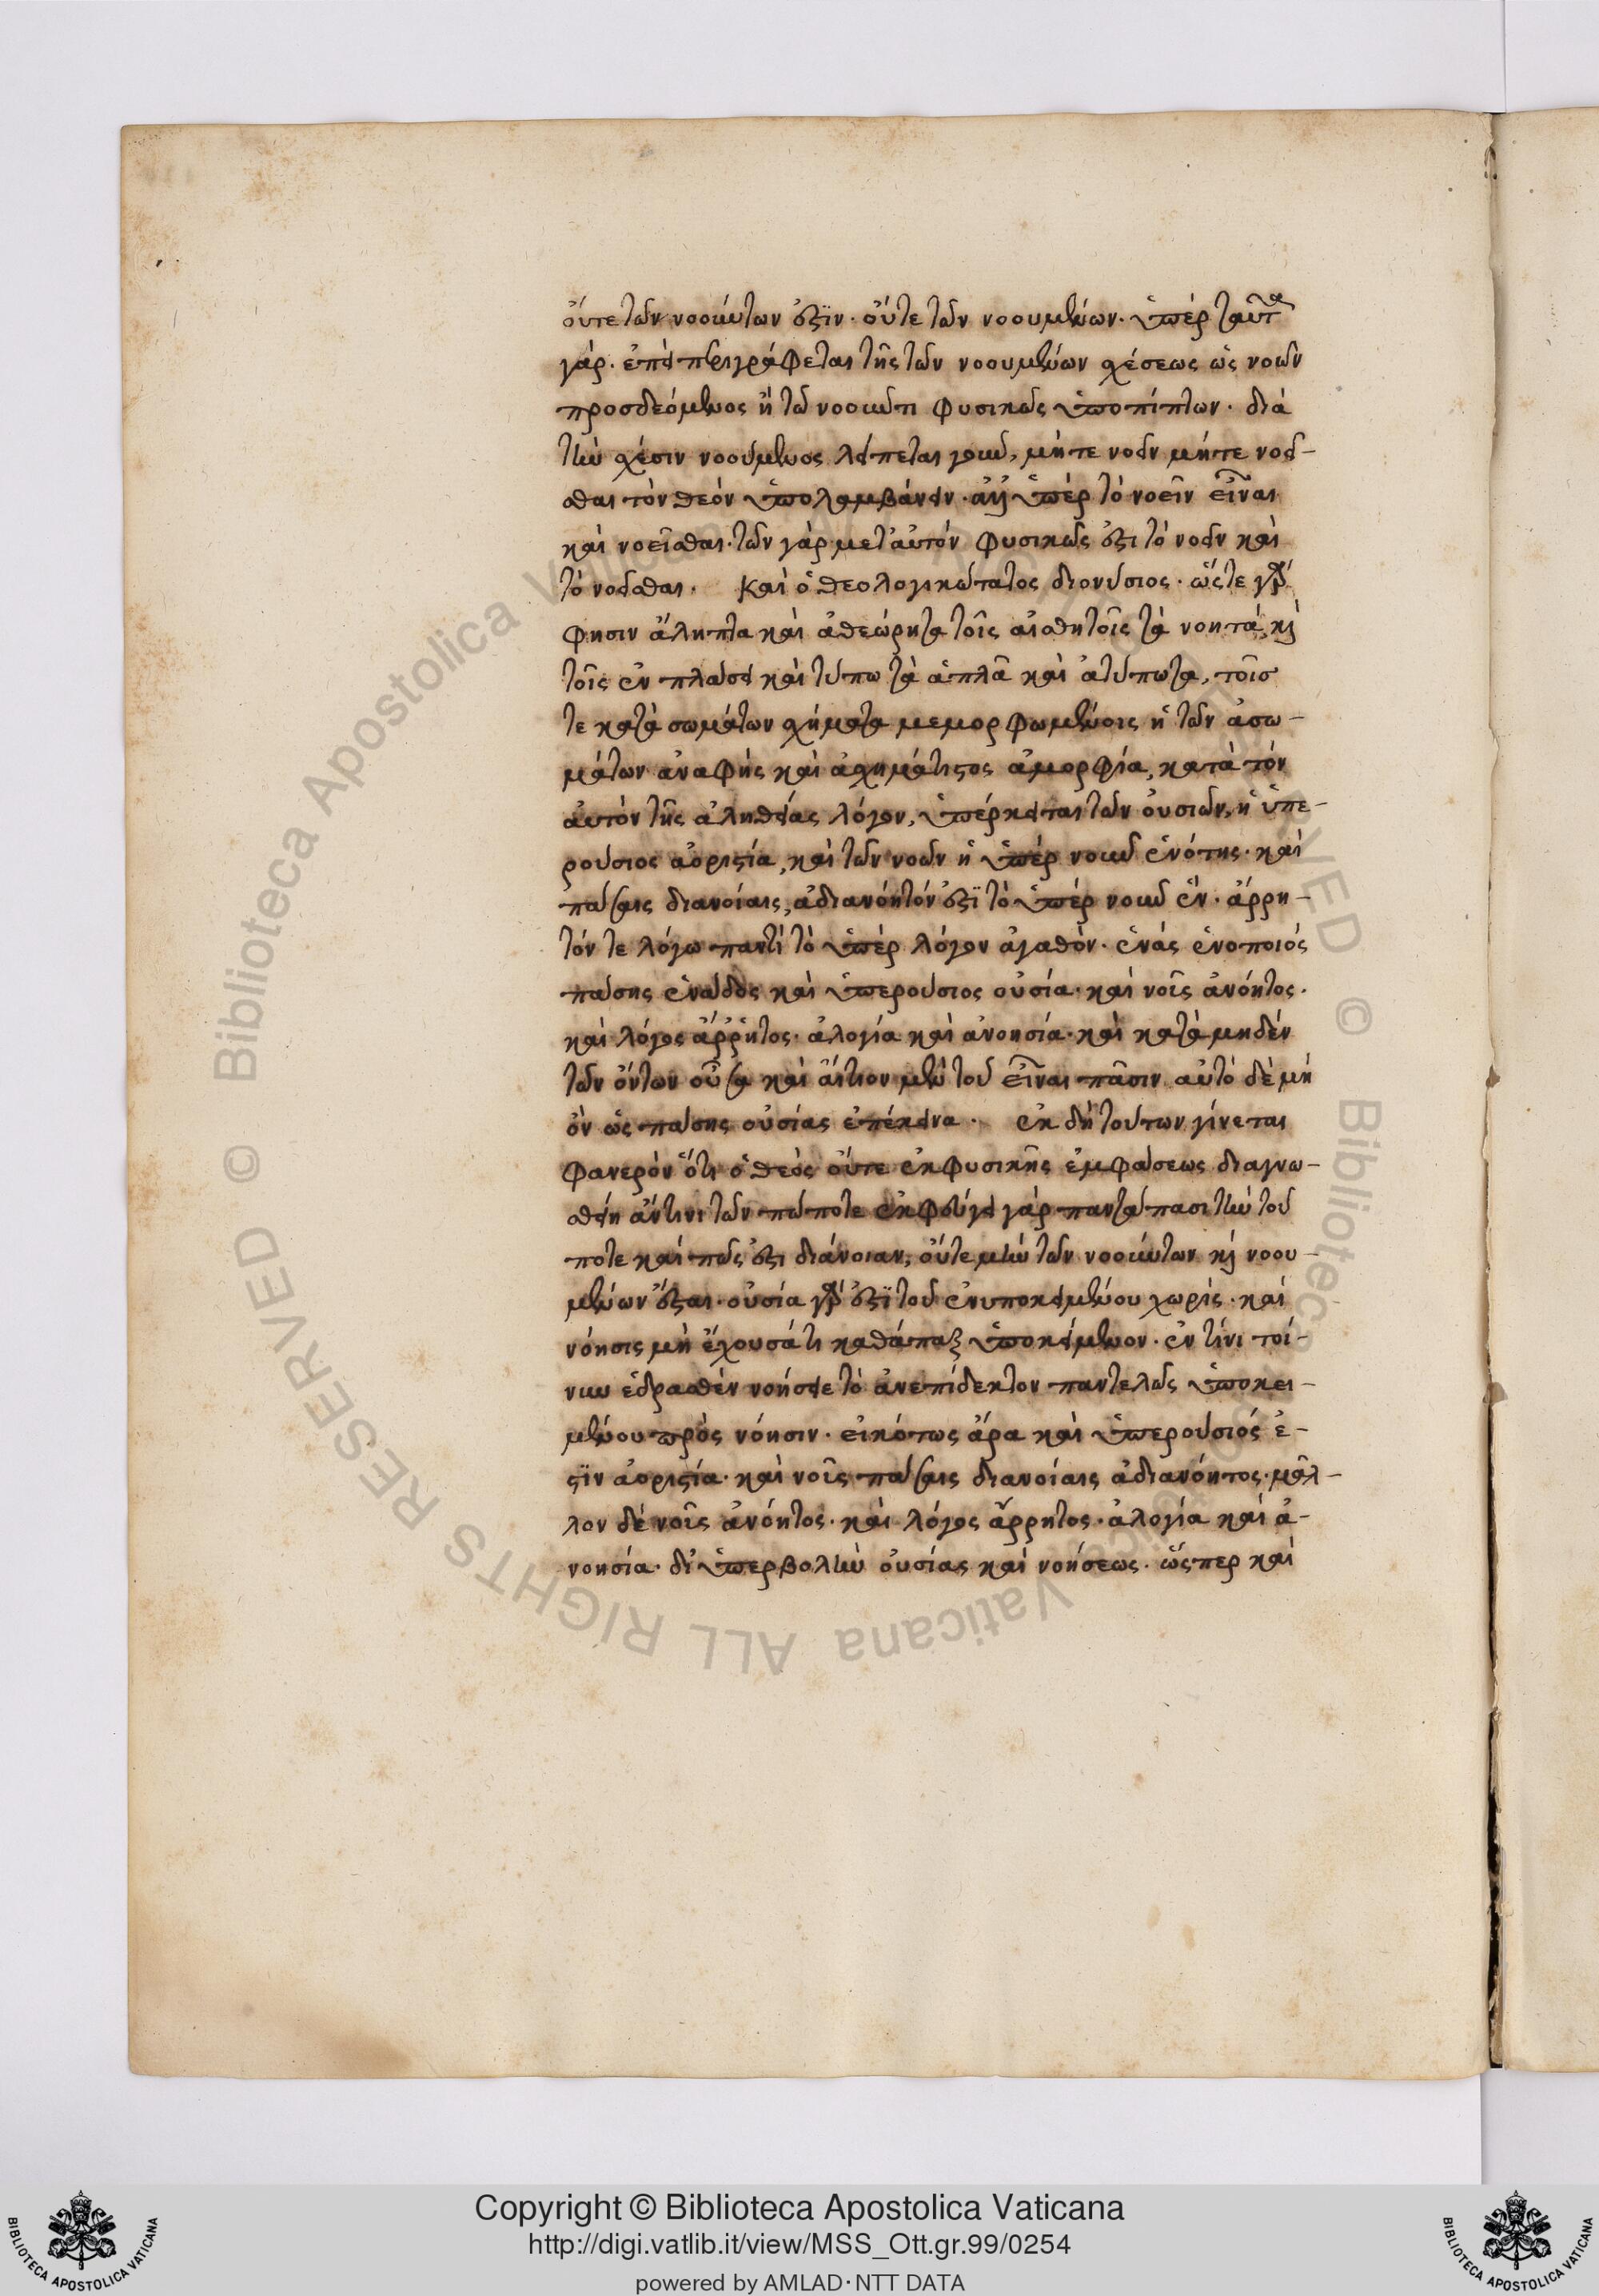 οὔτε τῶν νοούντων ἐστὶν· οὔτε τῶν νοουμένων. ὑπὲρ ταῦτα
γάρ. ἐπεὶ περιγράφεται τῆς τῶν νοουμένων σχέσεως ὡς νοῶν
προσδεόμενος ἢ τῶ νοοῦντι φυσικῶς ὑποπίπτων· διὰ
τὴν σχέσιν νοούμενος λείπεται γοῦν, μήτε νοεῖν μήτε νοεῖ-
σθαι τὸν θεὸν ὑπολαμβάνειν· ἀλλ ὑπὲρ τὸ νοεῖν εἶναι
καὶ νοεῖσθαι. τῶν γὰρ μετ αὐτόν φυσικῶς ἐστι τὸ νοεῖν καὶ
τὸ νοεῖσθαι. Καὶ ὁ θεολογικώτατος διονύσιος· ὥστε γὰρ
φησιν ἄληπτα καὶ ἀθεώρητα τοῖς αἰσθητοῖς τὰ νοητά, καὶ
τοῖς ἐν πλάσει καὶ τύπω τὰ ἁπλᾶ καὶ ἀτύπωτα, τοῖσ
τε κατὰ σωμάτων σχήματα μεμορφωμένοις ἡ τῶν ἀσω-
μάτων ἀναφὴς καὶ ἀσχημάτιστος ἀμορφία, κατὰ τὸν
αὐτὸν τῆς ἀληθείας λόγον, ὑπέρκειται τῶν οὐσιῶν, ἡ ὑπε-
ρούσιος ἀοριστία, καὶ τῶν νοῶν ἡ ὑπὲρ νοῦν ἑνότης· καὶ
πάσαις διανοίαις, ἀδιανόητόν ἐστὶ τὸ ὑπὲρ νοῦν ἕν· ἄρρη-
τόν τε λόγω παντὶ τὸ ὑπὲρ λόγον ἀγαθὸν· ἑνάς ἑνοποιός
πάσης ἑνάδος καὶ ὑπερούσιος οὐσία· καὶ νοῦς ἀνόητος.
καὶ λόγος ἄῤῥητος· ἀλογία καὶ ἀνοησία· καὶ κατὰ μηδὲν
τῶν ὄντων οὖσα καὶ αἴτιον μὲν τοῦ εἶναι πᾶσιν αὐτὸ δὲ μὴ
ὂν ὡς πάσης οὐσίας ἐπέκεινα. ἐκ δὴ τούτων γίνεται
φανερὸν ὅτι ὁ θεὸς οὔτε ἐκ φυσικῆς ἐμφάσεως διαγνω-
σθείη ἄν τινι τῶν πώποτε ἐκφεύγει γὰρ παντάπασι τὴν τοῦ
ποτε καί πώς ἐστι διάνοιαν, οὔτε μὴν τῶν νοούντων καὶ νοου-
μένων ἔσται· οὐσία γάρ ἐστὶ τοῦ ἐνυποκειμένου χωρίς· καὶ
νόησις μὴ ἔχουσά τι καθάπαξ ὑποκείμενον· ἐν τίνι τοί-
νυν ἑδρασθὲν νοήσειε τὸ ἀνεπίδεκτον παντελῶς ὑποκει-
μένου πρὸς νόησιν· εἰκότως ἄρα καὶ ὑπερούσιός ἐ-
στὶν ἀοριστία· καὶ νοῦς πάσαις διανοίαις ἀδιανόητος· μᾶλ-
λον δὲ νοῦς ἀνόητος· καὶ λόγος ἄρρητος· ἀλογία καὶ ἀ-
νοησία· δι ὑπερβολὴν οὐσίας καὶ νοήσεως. ὥσπερ καὶ
Copyright © Biblioteca Apostolica Vaticana
http://digi.vatlib.it/view/MSS_Ott.gr.99/0254
powered by AMLAD·NTT DATA
BIBLIOTECA APOSTOLICA VATICANA
BIBLIOTECA APOSTOLICA VATICANA
© Biblioteca Apostolica Vaticana ALL RIGHTS RESERVED